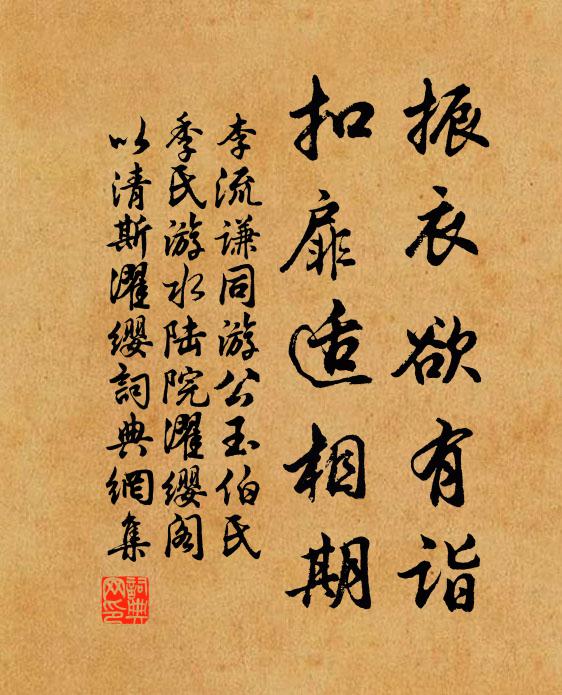 振衣欲有诣
扣扉适相期
李流谦同游公玉伯氏
季氏游水陆院濯缨阁
以清斯濯缨詞典網集
詞典网印